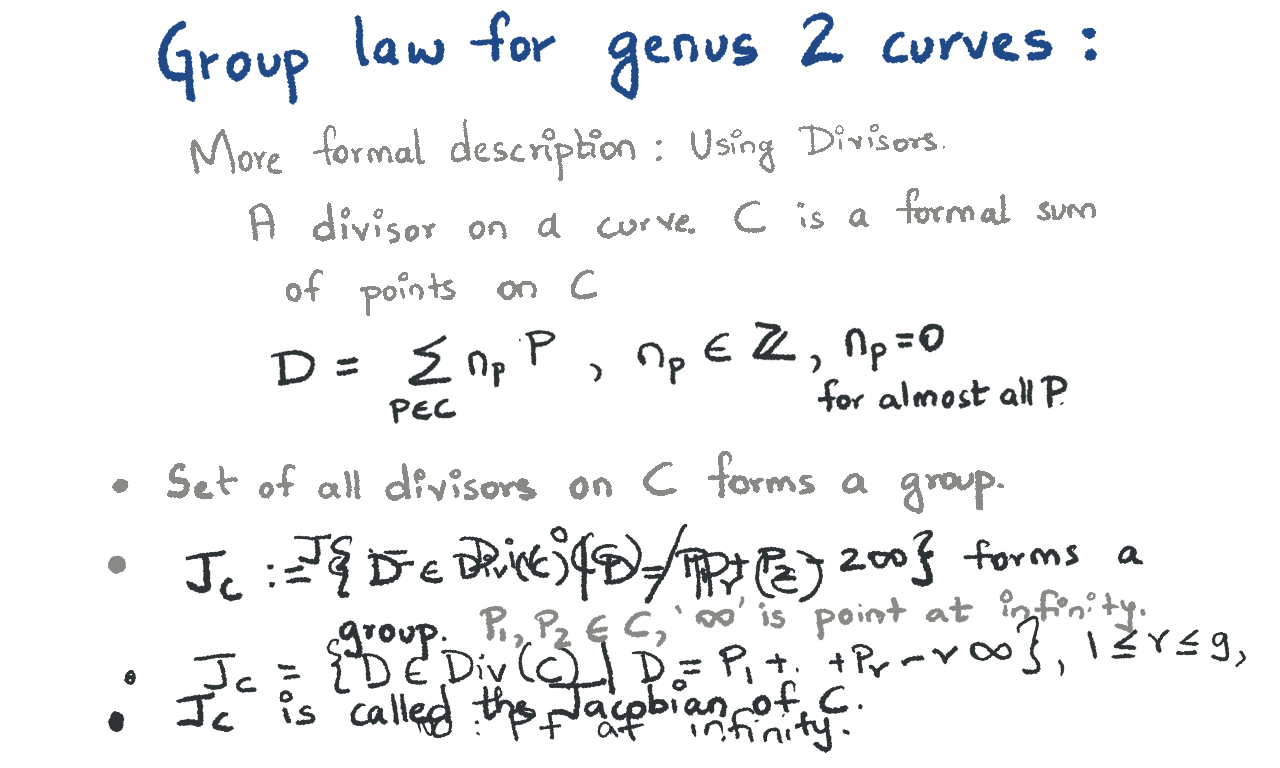 Group law for genus 2 curves :
More formal description : Using Divisors.
A divisor on a curve C is a formal sum
of points on C
D = Σ n_P P , n_P ∈ ℤ, n_P = 0
P∈C
for almost all P
• Set of all divisors on C forms a group.
• J_C := 2∞} forms a
group. P₁, P₂ ∈ C, '∞' is point at infinity.
• J_C = {D ∈ Div(C) | D = P₁ + . + P_r − r∞}, 1 ≤ r ≤ g,
• J_C is called the Jacobian of C.
at infinity.